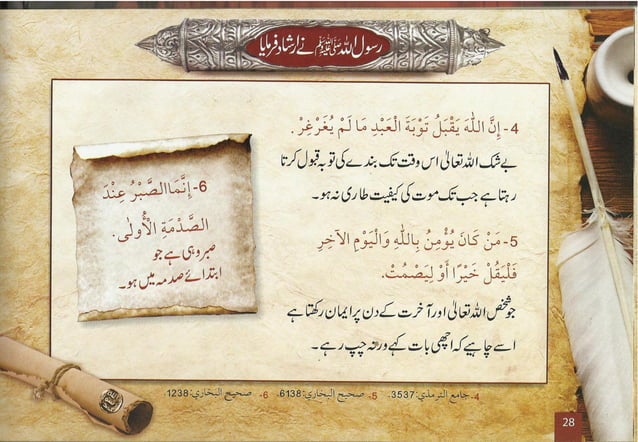 رسول اللہ ﷺ نے ارشاد فرمایا
4- إِنَّ اللّٰهَ يَقْبَلُ تَوْبَةَ الْعَبْدِ مَا لَمْ يُغَرْغِرْ.
بے شک اللہ تعالیٰ اس وقت تک بندے کی توبہ قبول کرتا
رہتا ہے جب تک موت کی کیفیت طاری نہ ہو۔
5- مَنْ كَانَ يُؤْمِنُ بِاللّٰهِ وَالْيَوْمِ الآخِرِ
فَلْيَقُلْ خَيْرًا أَوْ لِيَصْمُتْ.
جو شخص اللہ تعالیٰ اور آخرت کے دن پر ایمان رکھتا ہے
اسے چاہیے کہ اچھی بات کہے ورنہ چپ رہے۔
6- إِنَّمَا الصَّبْرُ عِنْدَ
الصَّدْمَةِ الْأُولٰى.
صبر وہی ہے جو
ابتدائے صدمہ میں ہو۔
4- جامع الترمذي: 3537. 5- صحيح البخاري: 6138. 6- صحيح البخاري: 1238.
28